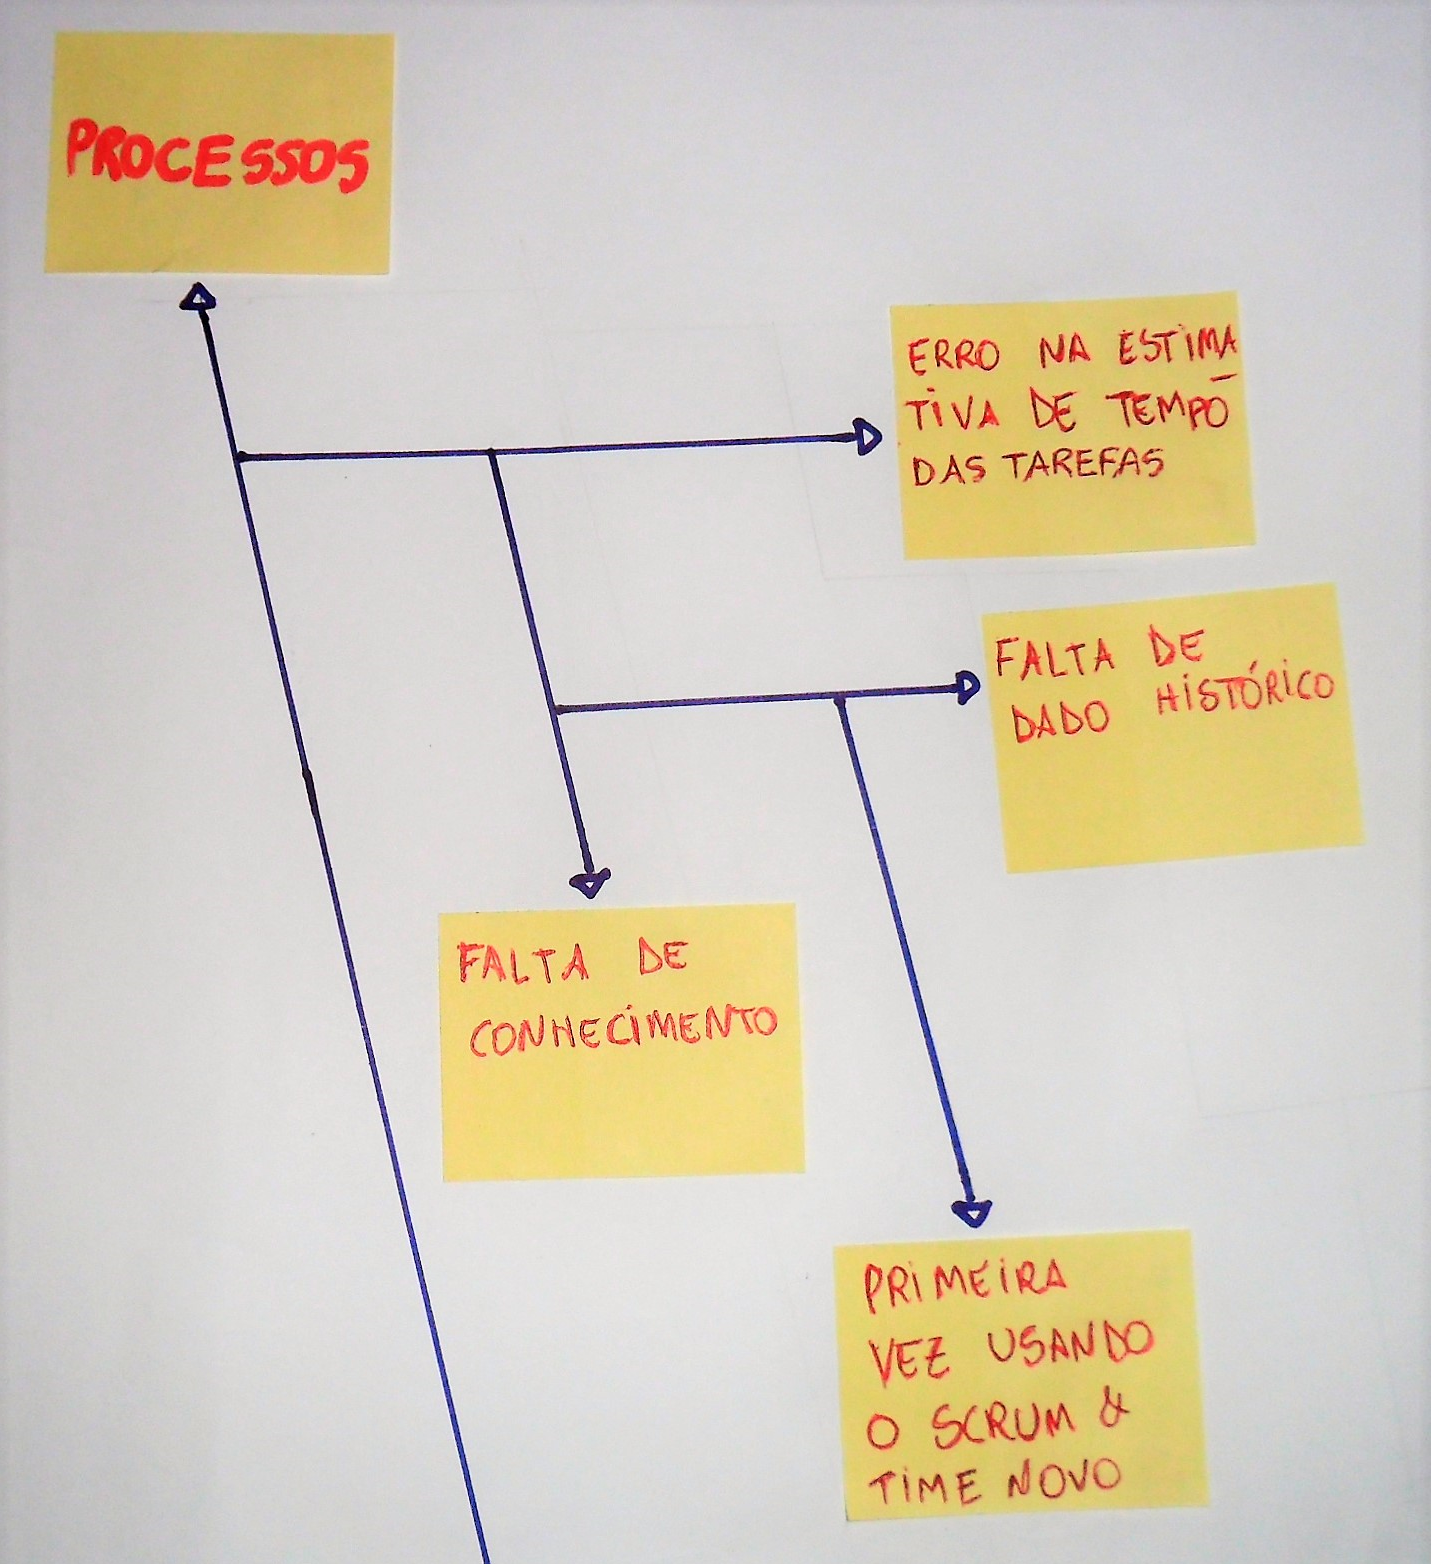 PROCESSOS
ERRO NA ESTIMA
TIVA DE TEMPO
DAS TAREFAS
FALTA DE
DADO HISTÓRICO
FALTA DE
CONHECIMENTO
PRIMEIRA
VEZ USANDO
O SCRUM &
TIME NOVO